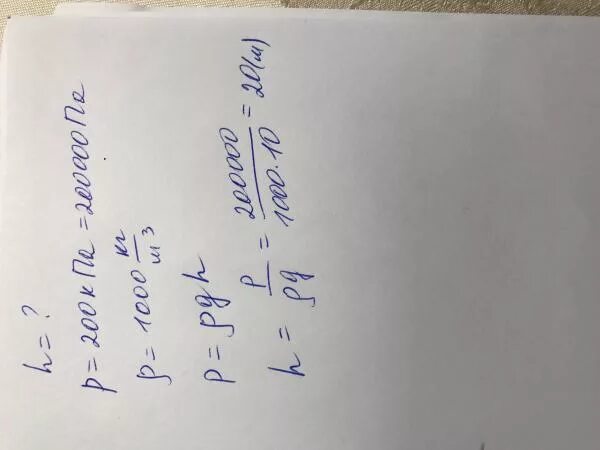 h = ?
p = 200 кПа = 200000 Па
ρ = 1000 кг/м³
p = ρgh
h = p/ρg = 200000/1000·10 = 20 (м)